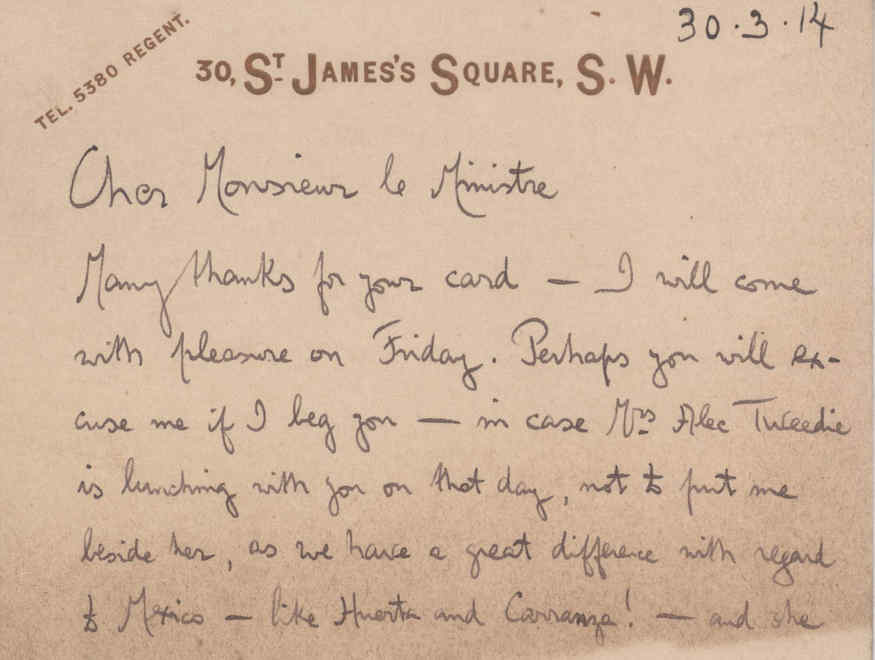 30.3.14
TEL. 5380 REGENT.
30, ST JAMES'S SQUARE, S. W.
Cher Monsieur le Ministre
Many thanks for your card — I will come
with pleasure on Friday. Perhaps you will ex-
cuse me if I beg you — in case Mrs Alec Tweedie
is lunching with you on that day, not to put me
beside her, as we have a great difference with regard
to Mexico — like Huerta and Carranza! — and she